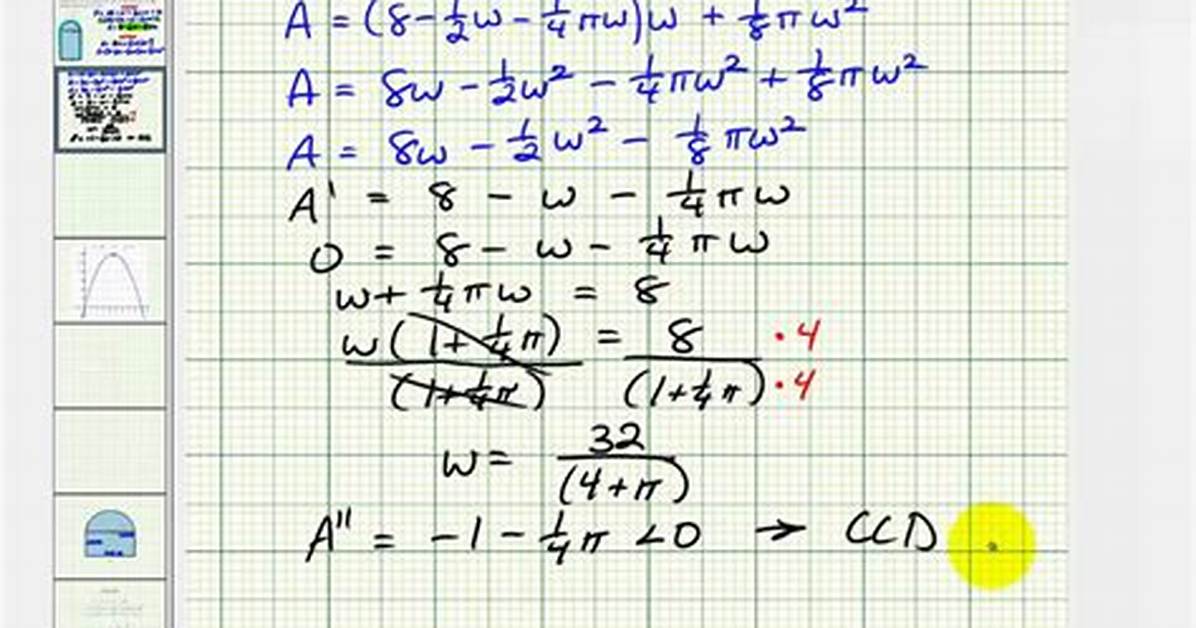 A = (8-1/2w - 1/4πw)w + 1/8πw²
A = 8w - 1/2w² - 1/4πw² + 1/8πw²
A = 8w - 1/2w² - 1/8πw²
A' = 8 - w - 1/4πw
0 = 8 - w - 1/4πw
w + 1/4πw = 8
w(1+1/4π)/(1+1/4π) = 8/(1+1/4π) ·4 ·4
w = 32/(4+π)
A'' = -1 - 1/4π <0 → CCD